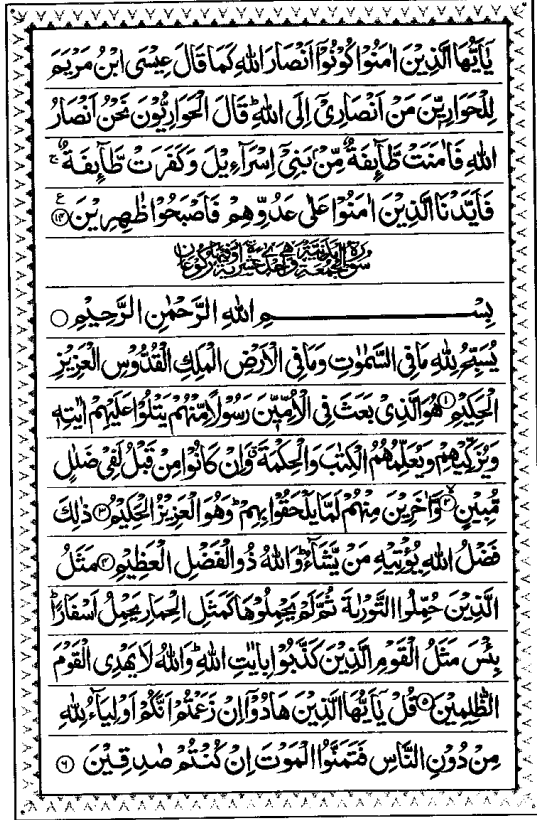 یٰۤاَیُّهَا الَّذِیْنَ اٰمَنُوْا كُوْنُوْۤا اَنْصَارَ اللّٰهِ كَمَا قَالَ عِیْسَی ابْنُ مَرْیَمَ
لِلْحَوَارِیّٖنَ مَنْ اَنْصَارِیْۤ اِلَی اللّٰهِ ؕ قَالَ الْحَوَارِیُّوْنَ نَحْنُ اَنْصَارُ
اللّٰهِ فَاٰمَنَتْ طَّآىِٕفَةٌ مِّنْۢ بَنِیْۤ اِسْرَآءِیْلَ وَ كَفَرَتْ طَّآىِٕفَةٌ ۚ
فَاَیَّدْنَا الَّذِیْنَ اٰمَنُوْا عَلٰی عَدُوِّهِمْ فَاَصْبَحُوْا ظٰهِرِیْنَ ﴿۱۴﴾ ع
بِسْمِ اللّٰهِ الرَّحْمٰنِ الرَّحِیْمِ
یُسَبِّحُ لِلّٰهِ مَا فِی السَّمٰوٰتِ وَ مَا فِی الْاَرْضِ الْمَلِكِ الْقُدُّوْسِ الْعَزِیْزِ
الْحَكِیْمِ ﴿۱﴾ هُوَ الَّذِیْ بَعَثَ فِی الْاُمِّیّٖنَ رَسُوْلًا مِّنْهُمْ یَتْلُوْا عَلَیْهِمْ اٰیٰتِهٖ
وَ یُزَكِّیْهِمْ وَ یُعَلِّمُهُمُ الْكِتٰبَ وَ الْحِكْمَةَ ۗ وَ اِنْ كَانُوْا مِنْ قَبْلُ لَفِیْ ضَلٰلٍ
مُّبِیْنٍ ﴿۲﴾ وَّ اٰخَرِیْنَ مِنْهُمْ لَمَّا یَلْحَقُوْا بِهِمْ ؕ وَ هُوَ الْعَزِیْزُ الْحَكِیْمُ ﴿۳﴾ ذٰلِكَ
فَضْلُ اللّٰهِ یُؤْتِیْهِ مَنْ یَّشَآءُ ؕ وَ اللّٰهُ ذُو الْفَضْلِ الْعَظِیْمِ ﴿۴﴾ مَثَلُ
الَّذِیْنَ حُمِّلُوا التَّوْرٰىةَ ثُمَّ لَمْ یَحْمِلُوْهَا كَمَثَلِ الْحِمَارِ یَحْمِلُ اَسْفَارًا ؕ
بِئْسَ مَثَلُ الْقَوْمِ الَّذِیْنَ كَذَّبُوْا بِاٰیٰتِ اللّٰهِ ؕ وَ اللّٰهُ لَا یَهْدِی الْقَوْمَ
الظّٰلِمِیْنَ ﴿۵﴾ قُلْ یٰۤاَیُّهَا الَّذِیْنَ هَادُوْۤا اِنْ زَعَمْتُمْ اَنَّكُمْ اَوْلِیَآءُ لِلّٰهِ
مِنْ دُوْنِ النَّاسِ فَتَمَنَّوُا الْمَوْتَ اِنْ كُنْتُمْ صٰدِقِیْنَ ﴿۶﴾